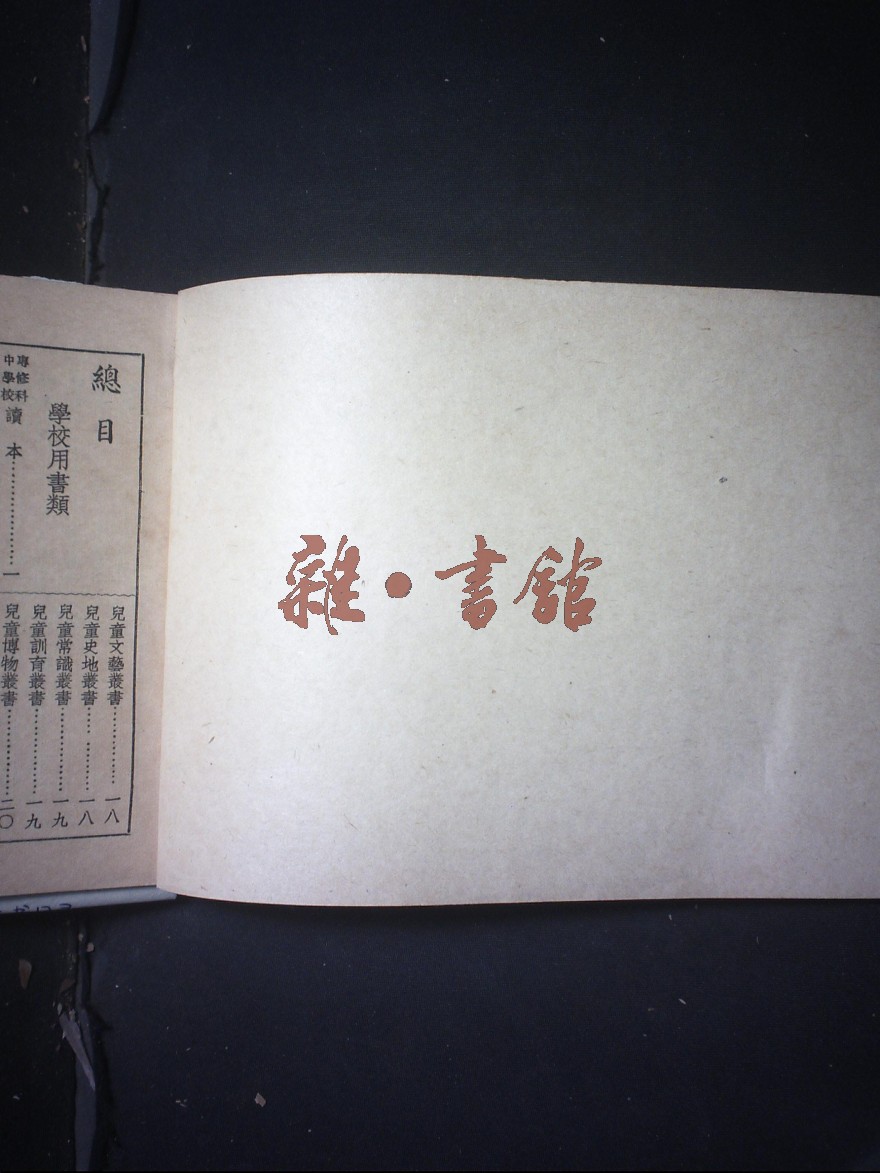 總目
學校用書類
專修科
中學校
讀本……………一
兒童文藝叢書……………一八
兒童史地叢書……………一八
兒童常識叢書……………一九
兒童訓育叢書……………一九
兒童博物叢書……………二〇
雜·書館